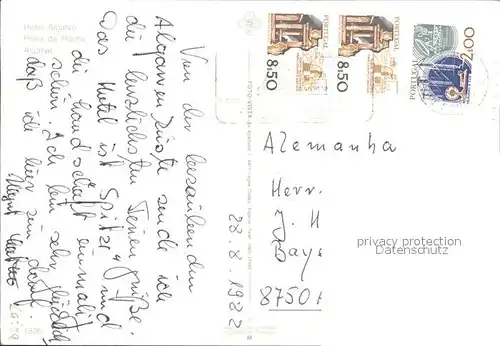 Hotel Algarve
Praia da Rocha
Algarve
Von der bezaubernden
Algarven Küste sende ich
die herzlichsten Ferien grüße.
Das Hotel ist Spitze und
die Landschaft einmalig
schön. Ich bin sehr glücklich
daß ich hier sein darf.
PORTUGAL
8$50
PORTUGAL
8$50
PORTUGAL
2$00
FOTO-VISTA
28.8.1982
Alemanha
Herrn
J. H
Baye
8750
privacy protection
Datenschutz